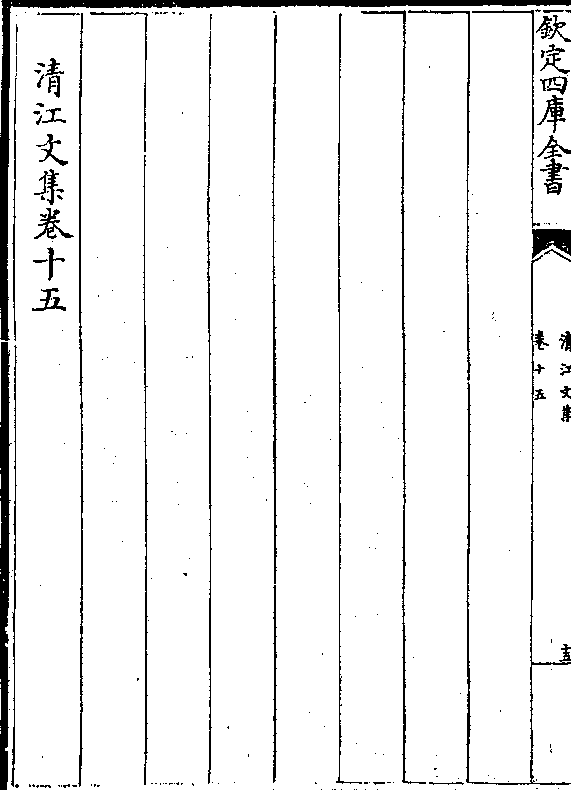 欽定四庫全書
清江文集
卷十五
十五
清江文集卷十五